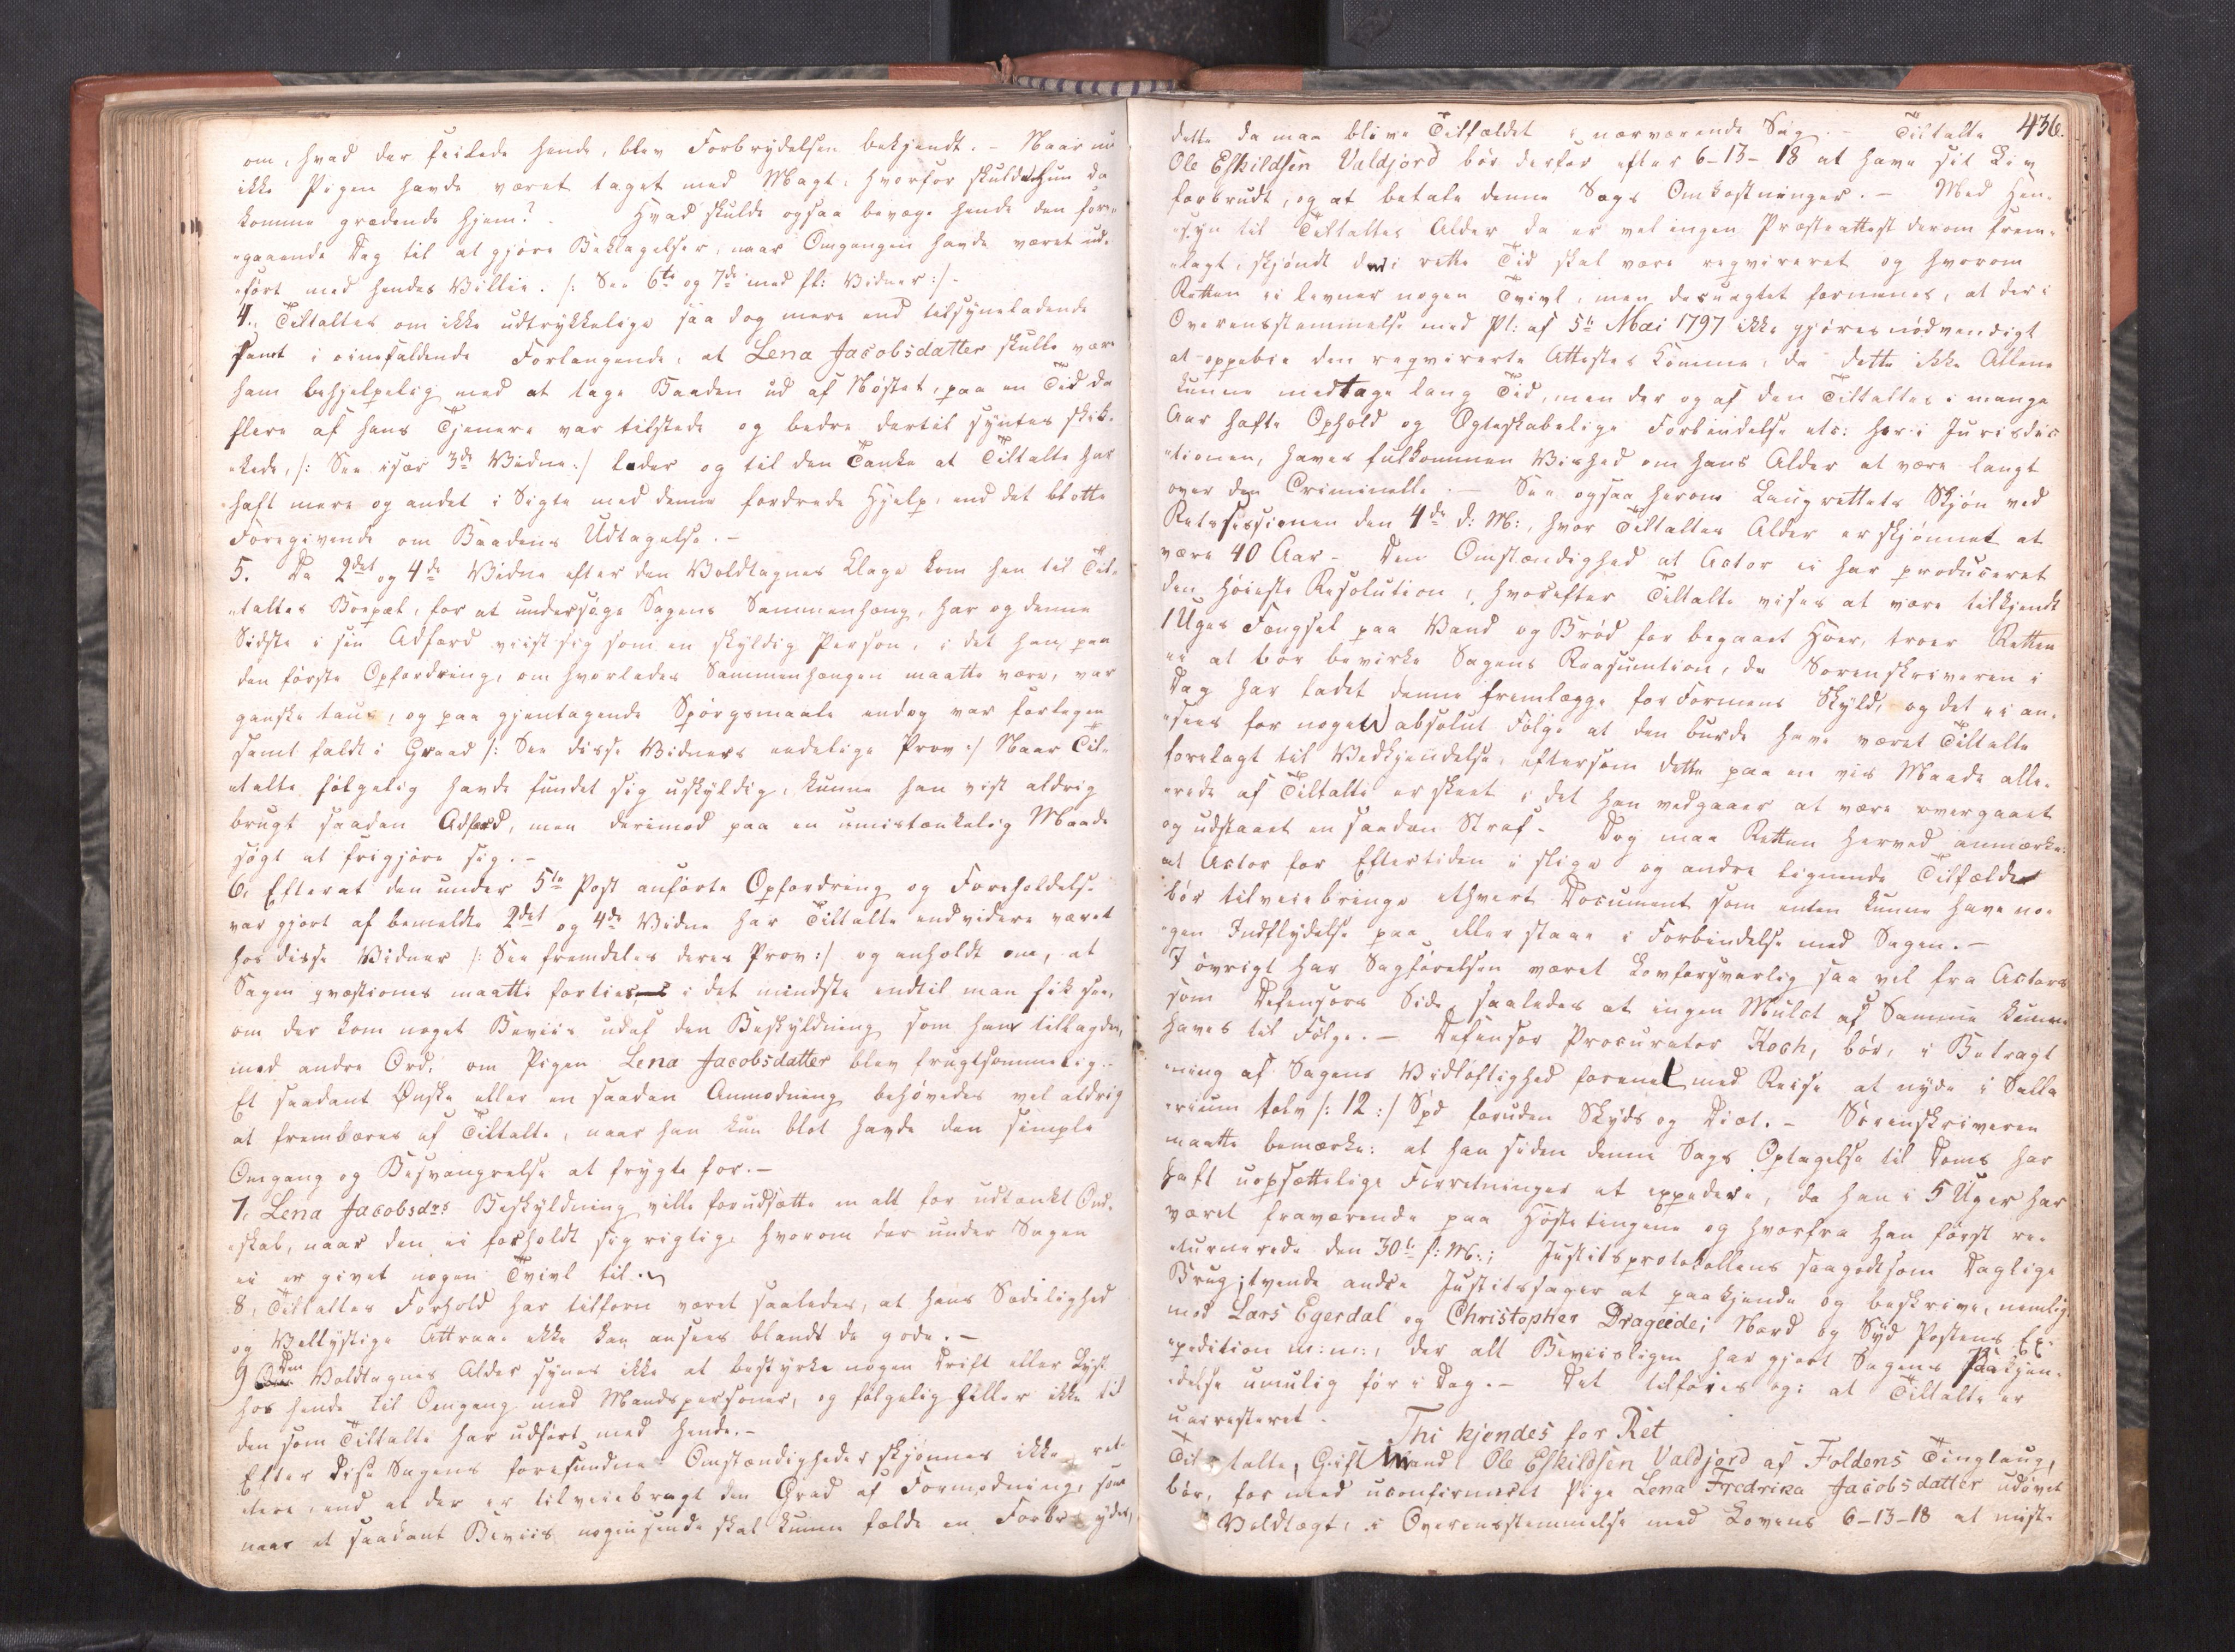 om, hvad der feilede hende, blev Forbrydelsen bekjendt. – Naar nu
ikke Pigen havde været taget med Magt, hvorfor skulde hun da
komme grædende hjem? Hvad skulde ogsaa bevæge hende den fore-
gaaende Dag til at gjøre Beklagelser, naar Omgangen havde været ud-
ført med hendes Villie. /: See 6te og 7de med fl: Vidner :/ –
4., Tiltaltes om ikke udtrykkelige saa dog mere end tilsyneladende
samt i øinefaldende Forlangende, at Lena Jacobsdatter skulle være
ham behjelpelig med at tage Baaden ud af Nøstet, paa en Tid da
flere af hans Tjenere var tilstede og bedre dertil syntes skik-
kede, /: See især 3de Vidne :/ leder og til den Tanke at Tiltalte har
haft mere og andet i Sigte med denne fordrede Hjelp, end det blotte
Foregivende om Baadens Udtagelse. –
5. Da 2det og 4de Vidne efter den Voldtagnes Klage kom hen til Til-
taltes Boepæl, for at undersøge Sagens Sammenhæng, har og denne
Sidste i sin Adfærd viist sig som en skyldig Person, i det han paa
den første Opfordring, om hvorledes Sammenhængen maatte være, var
ganske taus, og paa gjentagende Spørgsmaale endog var forlegen
samt faldt i Graad /: See disse Vidners eedelige Prov :/ Naar Til-
talte følgelig havde fundet sig uskyldig, kunne han vist aldrig
brugt saadan Adfærd, men derimod paa en umistænkelig Maade
søgt at frigjøre sig. –
6. Efterat den under 5te Post anførte Opfordring og Foreholdelse
var gjort af bemeldte 2det og 4de Vidne har Tiltalte endvidere været
hos disse Vidner /: See fremdeles deres Prov :/ og anholdt om, at
Sagen qvæstionis maatte forties i det mindste indtil man fik see,
om der kom noget Beviis udaf den Beskyldning som ham tillagdes,
med andre Ord, om Pigen Lena Jacobsdatter blev frugtsommelig. –
Et saadant Ønske eller en saadan Anmodning behøvedes vel aldrig
at frembæres af Tiltalte, naar han kun blot havde den simple
Omgang og Besvangrelse at frygte for. –
7. Lena Jacobsdrs Beskyldning ville forudsætte en alt for udtænkt Ond-
skab, naar den ei forholdt sig rigtig, hvorom der under Sagen
ei er givet nogen Tvivl til.
8, Tiltaltes Forhold har tilforn været saaledes, at hans Sædelighed
og Vellystige Attraae ikke kan ansees blandt de gode. –
9 Den Voldtagnes Alder synes ikke at bestyrke nogen Drift eller Lyst
hos hende til Omgang med Mandspersoner, og følgelig heller ikke til
den som Tiltalte har udført med hende. –
Efter disse Sagens forefundne Omstændigheder skjønnes ikke ret-
tere, end at der er tilveiebragt den Grad af Formodning, som
naar et saadant Beviis nogensende skal kunne fælde en Forbryder,
436.
dette da maa blive Tilfældet i nærværende Sag. – Tiltalte
Ole Eskildsen Valdjord bør derfor efter 6–13–18 at have sit Liv
forbrudt, og at betale denne Sags Omkostninger. – Med Hen-
syn til Tiltaltes Alder da er vel ingen Præsteattest derom frem-
lagt, skjøndt den i rette Tid skal være reqvireret og hvorom
Retten ei levner nogen Tvivl, men desuagtet formenes, at der i
Overensstemmelse med Pl: af 5te Mai 1797 ikke gjøres nødvendigt
at oppebie den reqvirerte Attestes Komme, da dette ikke Allene
kunne medtage lang Tid, men der og af den Tiltaltes i mange
Aar hafte Ophold og Ægteskabelige Forbindelse etc: her i Jurisdic
tionen, haves fulkommen Vished om hans Alder at være langt
over den Criminelle. – See ogsaa herom Laugrettets Skjøn ved
Retsessionen den 4de d: M:, hvor Tiltaltes Alder er skjønnet at
være 40 Aar – Den Omstændighed at Actor ei har produceret
den høieste Resolution, hvorefter Tiltalte vises at være tilkjendt
1 Uges Fængsel paa Vand og Brød for begaaet Hoer, troer Retten
ei at bør bevirke Sagens Reasumtion, da Sorenskriveren i
Dag har ladet denne fremlægge for Formens Skyld, og det ei an-
sees for nogen absolut Følge at den burde have været Tiltalte
forelagt til Vedkjendelse, eftersom dette paa en vis Maade alle-
rede af Tiltalte er skeet i det han vedgaaer at være overgaaet
og udstaaet en saadan Straf – Dog maa Retten herved anmærke:
at Actor for Eftertiden i slige og andre lignende Tilfælde
bør tilveiebringe ethvert Document som enten kunne have no-
gen Indflydelse paa eller staae i Forbindelse med Sagen. –
I øvrigt har Sagførelsen været Lovforsvarlig saa vel fra Actors
som Defensors Side, saaledes at ingen Mulct af Samme kunne
haves til Følge. – Defensor Procurator Koch, bør, i Betragt
ning af Sagens Vidtløftighed forenet med Reise at nyde i Salla
rium tolv /: 12 :/ Spd foruden Skyds og Diæt. – Sorenskriveren
maatte bemærke: at han siden denne Sags Optagelse til Doms har
haft uopsættelige Forretninger at expedere, da han i 5 Uger har
været fraværende paa Høstetingene og hvorfra han først re-
turnerede den 30te f: M:; Justitsprotokollens saagodtsom Daglige
Brug; tvende andre Justitssager at paakjende og beskrive, nemlig:
mod Lars Egerdal og Christopher Drageeide; Nord og Syd Postens Ex-
pedition m: m:, der alt Beviisligen har gjort Sagens Paakjen-
delse umulig før i Dag. – Det tilføies og: at Tiltalte er
uarresteret.
Thi kjendes for Ret
Tiltalte, Gift Mand Ole Eskildsen Valdjord af Foldens Tinglaug,
bør, for med uconfirmert Pige Lena Fredrika Jacobsdatter udøvet
Voldtægt, i Overensstemmelse med Lovens 6–13–18 at miste